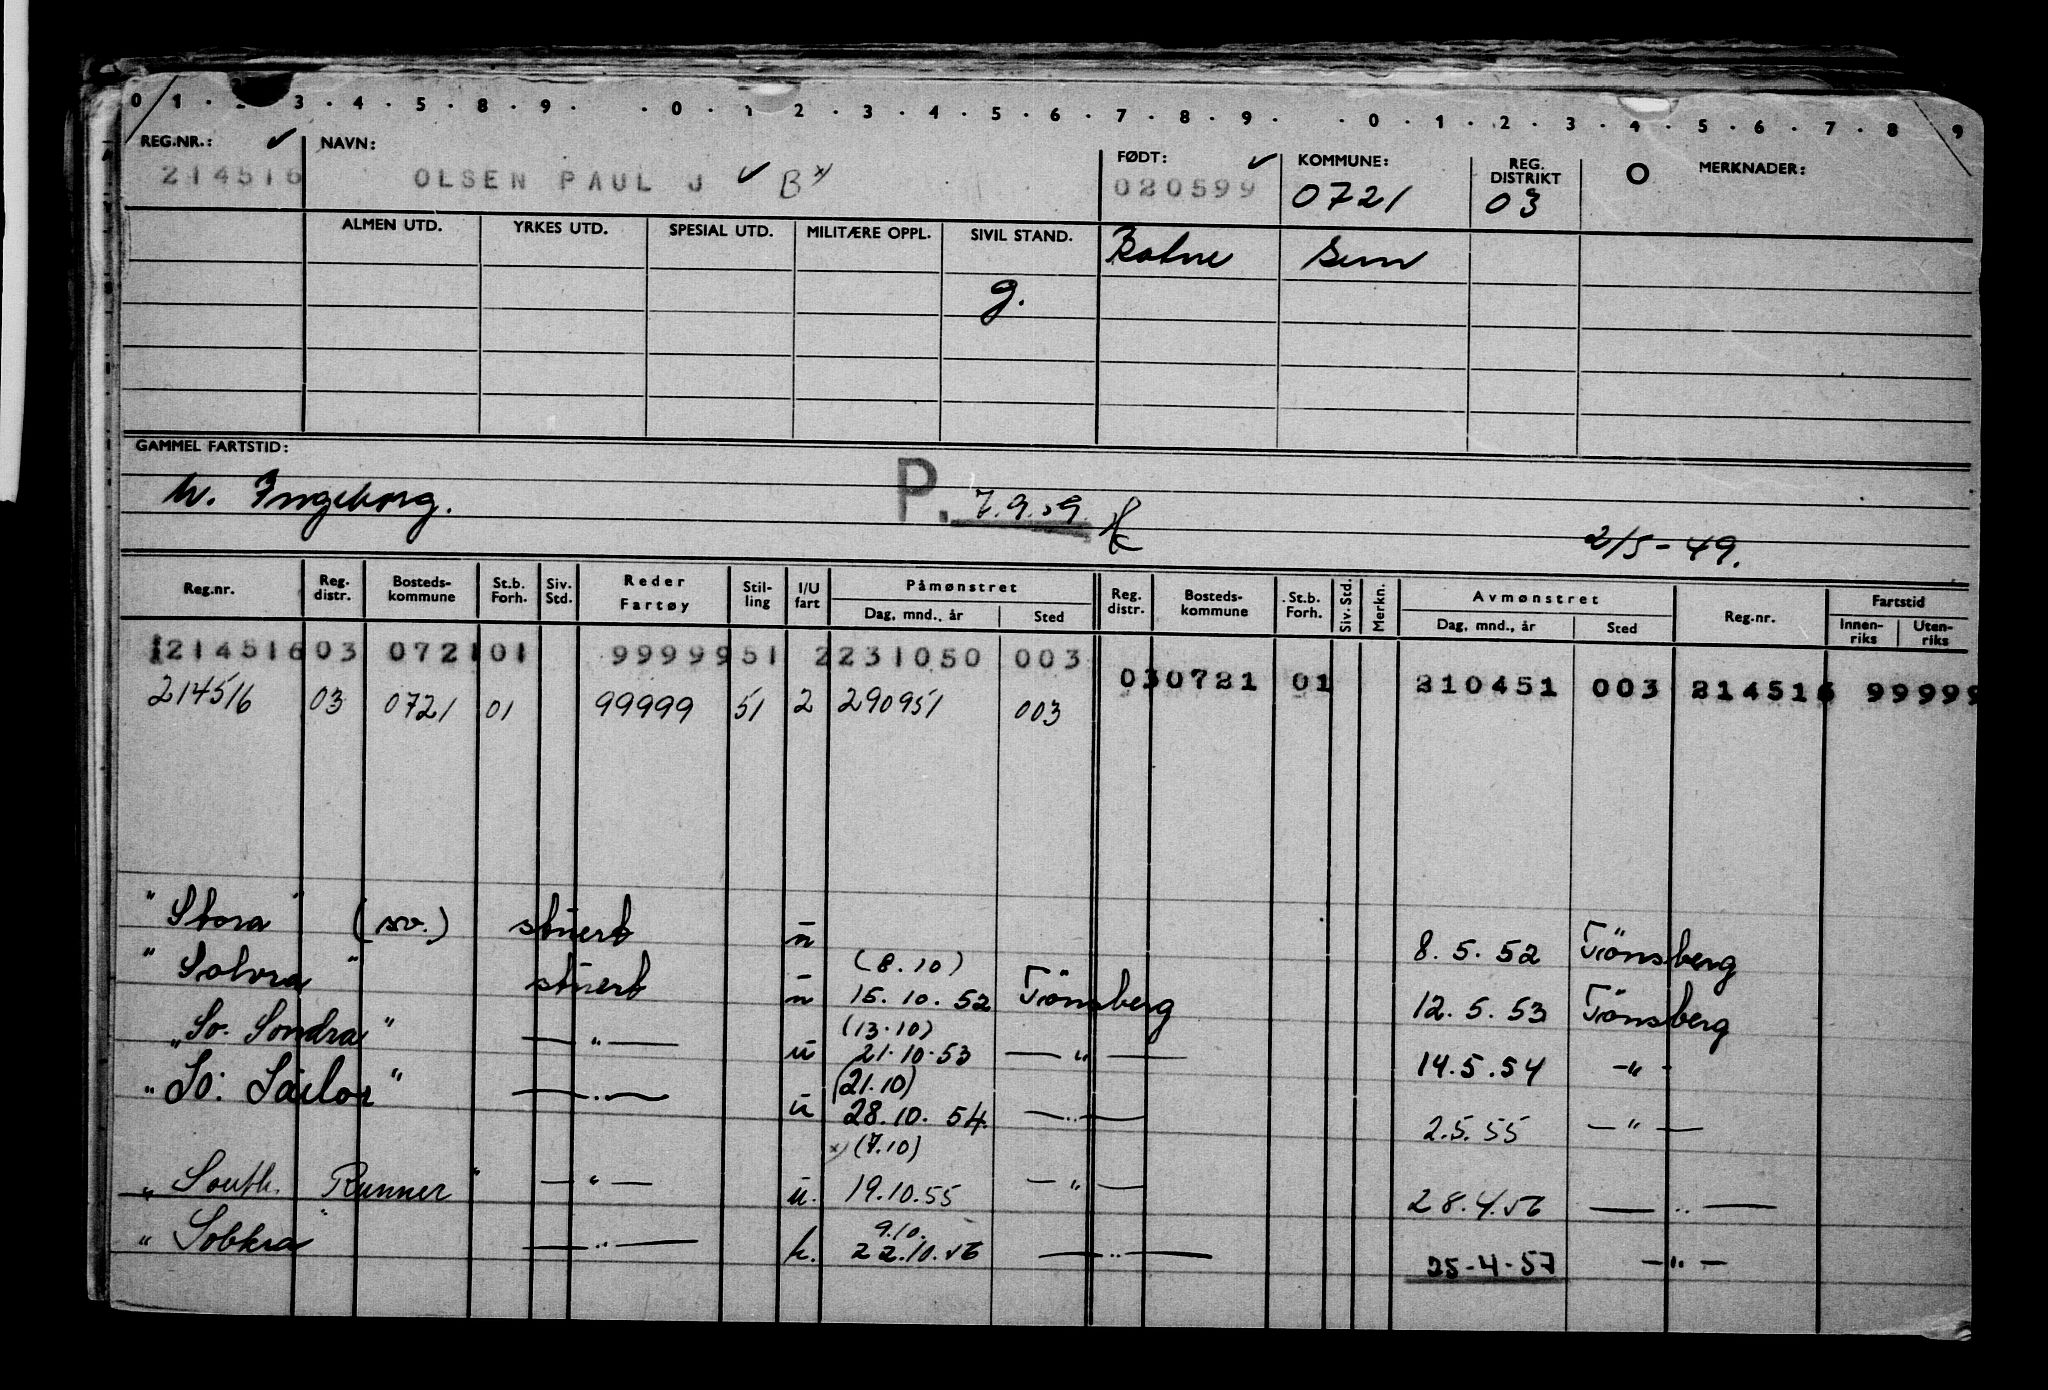 0 1 . 2 . 3 . 4 . 5 . 8 . 9 . . 0 . 1 . 2 . 3 . 4 . 5 . 6 . 7 . 8 . 9 . . 0 . 1 . 2 . 3 . 4 . 5 . 6 . 7 . 8 . 9
REG.NR.: ✓ NAVN: FØDT: ✓ KOMMUNE: REG. DISTRIKT O MERKNADER:
214516 OLSEN PAUL J ✓ B x) 020599 0721 03
ALMEN UTD. YRKES UTD. SPESIAL UTD. MILITÆRE OPPL. SIVIL STAND. Sem
g.
GAMMEL FARTSTID:
h. Ingeborg. P. 7.9.59
2/5-49.
Reg.nr. Reg. distr. Bosteds-kommune St.b. Forh. Siv. Std. Reder Fartøy Stil-ling I/U fart Påmønstret Reg. distr. Bosteds-kommune St.b. Forh. Siv. Std. Merkn. Avmønstret Reg.nr. Fartstid
Dag, mnd., år Sted Dag, mnd., år Sted Innen-riks Uten-riks
1214516 03 0721 01 99999 51 2 231050 003 03 0721 01 210451 003 214516 99999
214516 03 0721 01 99999 51 2 290951 003
"Stora" (sv.) stuert u 8.5.52 Tönsberg
(8.10)
"Solvra" stuert u 15.10.52 Tönsberg 12.5.53 Tönsberg
(13.10)
"So. Sondra" — " — u 21.10.53 — " — 14.5.54 — " —
(21.10)
"So. Sailor" — " — u 28.10.54. — " — 2.5.55 — " —
x) (7.10)
"South. Runner" — " — u. 19.10.55 — " — 28.4.56 — " —
9.10.
"Sobkra" — " — k. 22.10.56 — " — 25-4-57 — " —